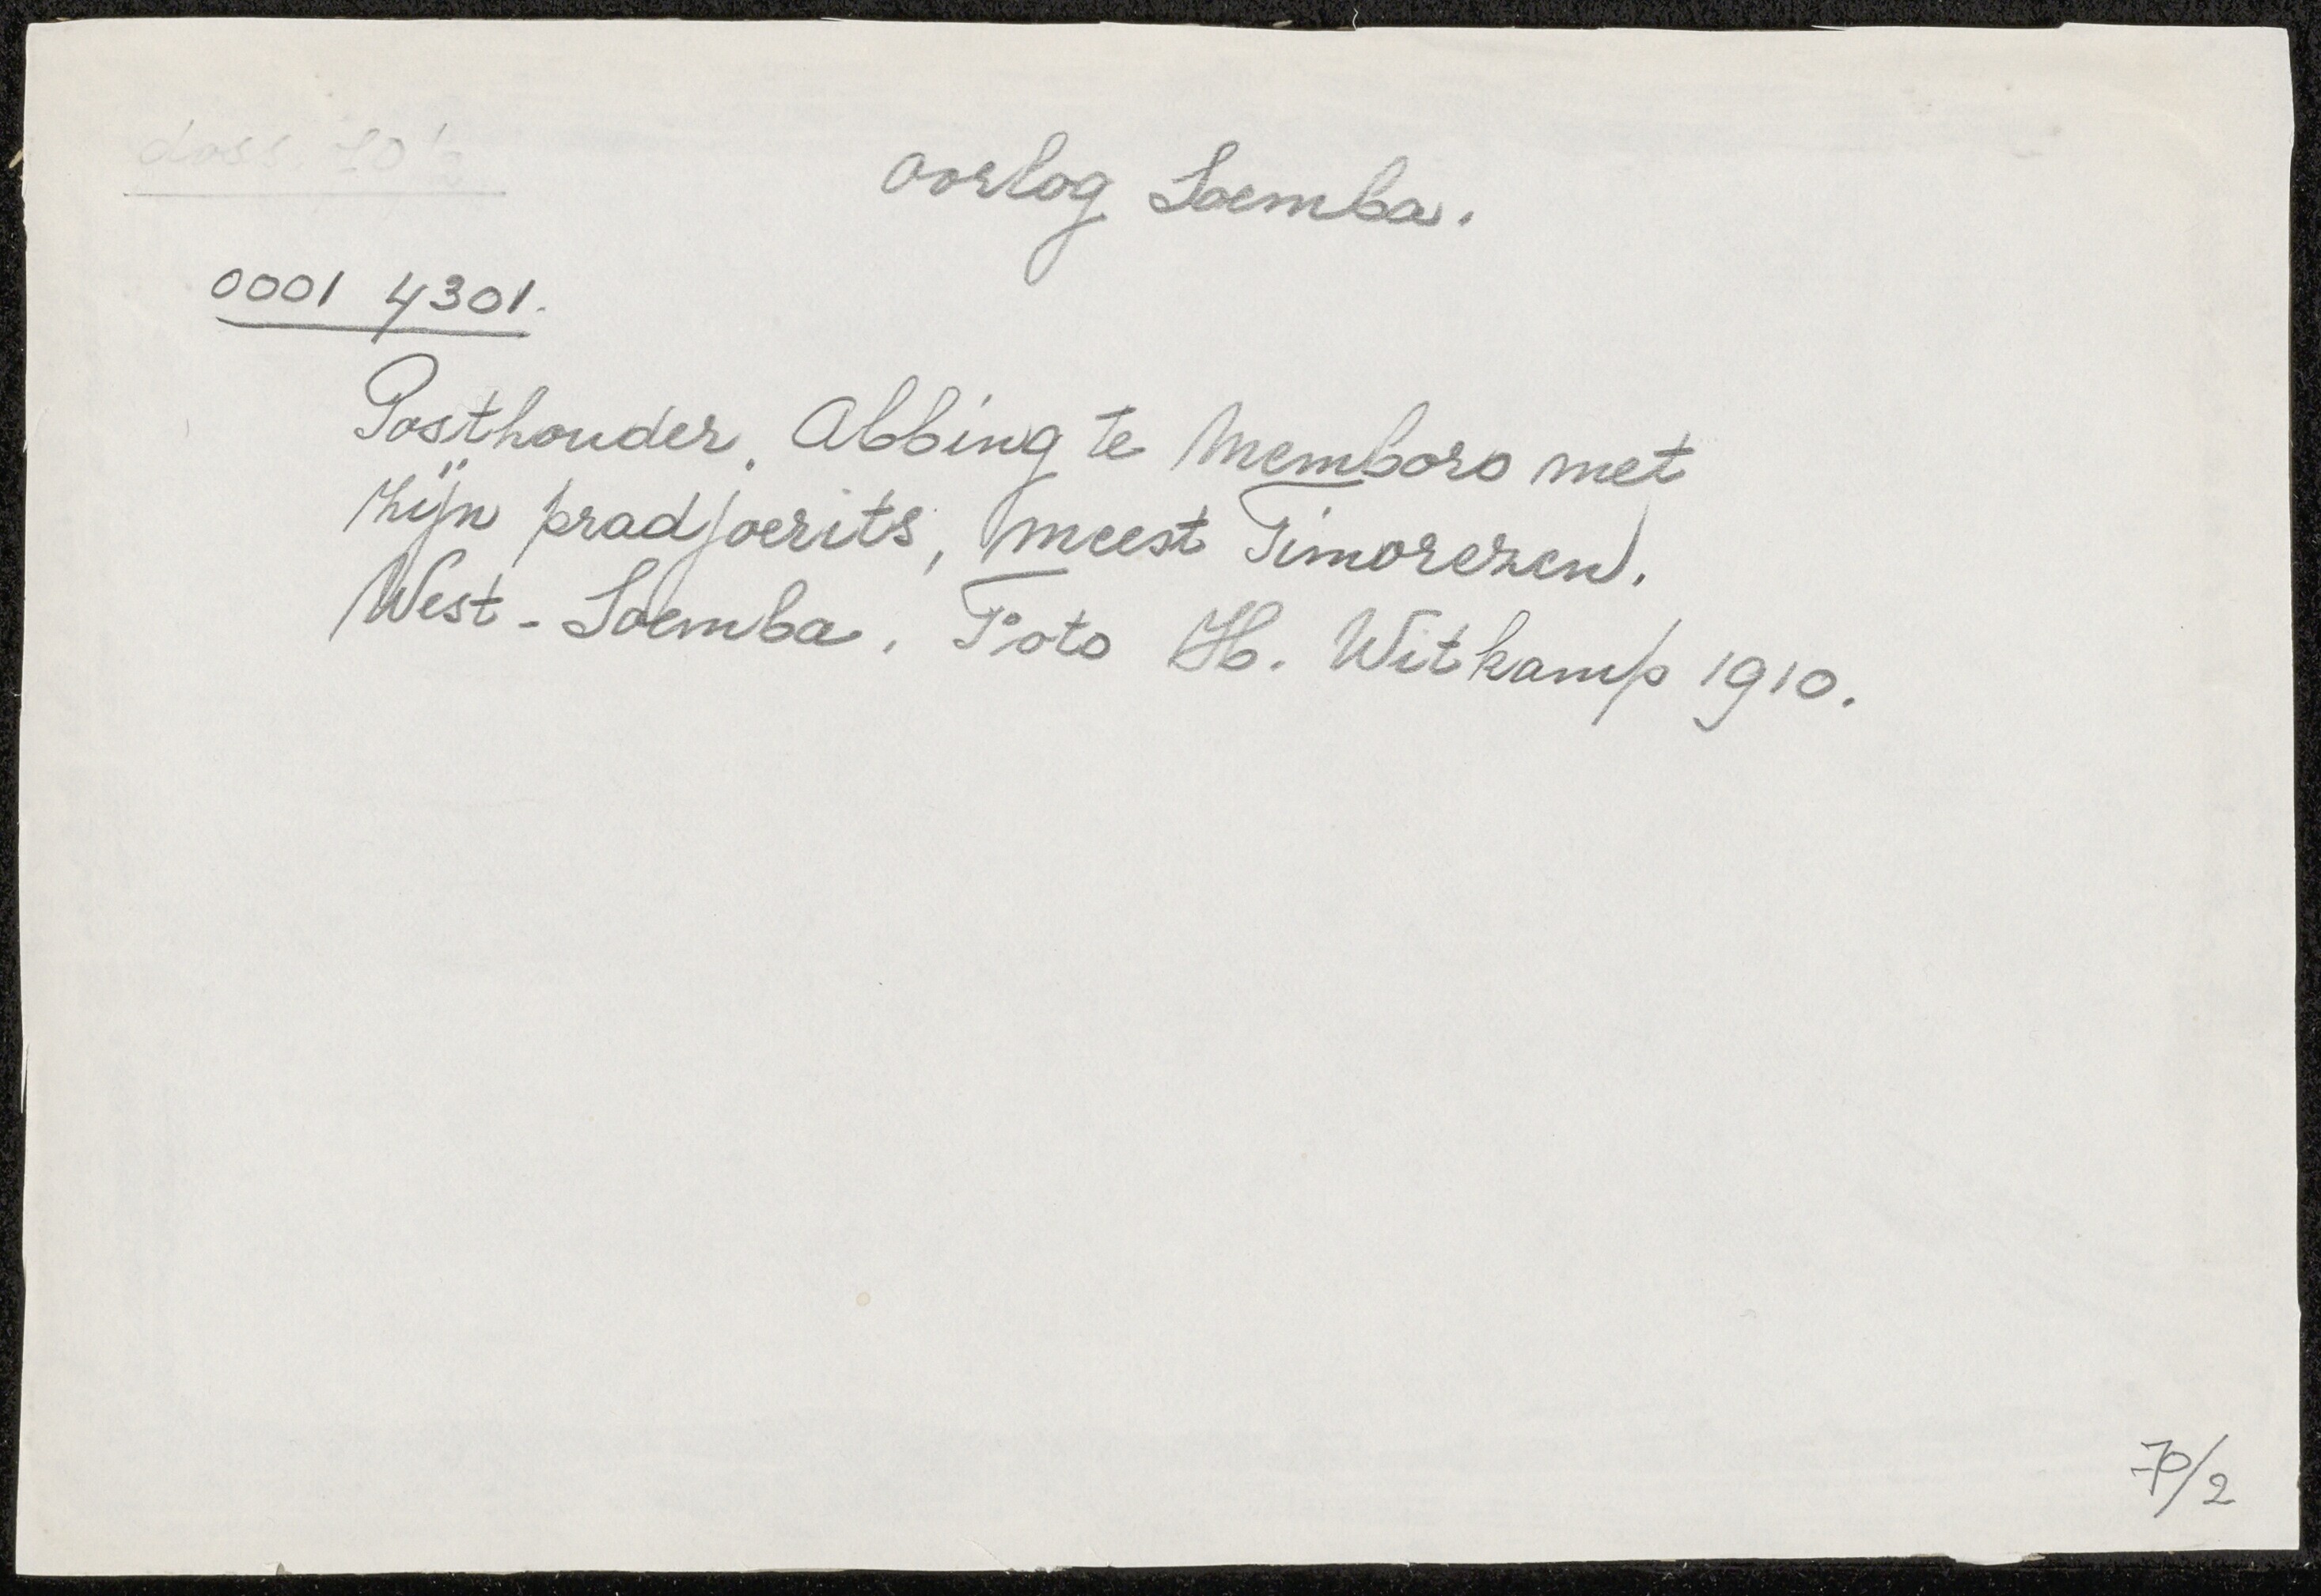 doss. 70/2
oorlog Soemba.
0001 4301.
Posthouder. Abbing te Memboro met
zijn pradjoerits, meest Timorezen.
West-Soemba. Foto H. Witkamp 1910.
70/2